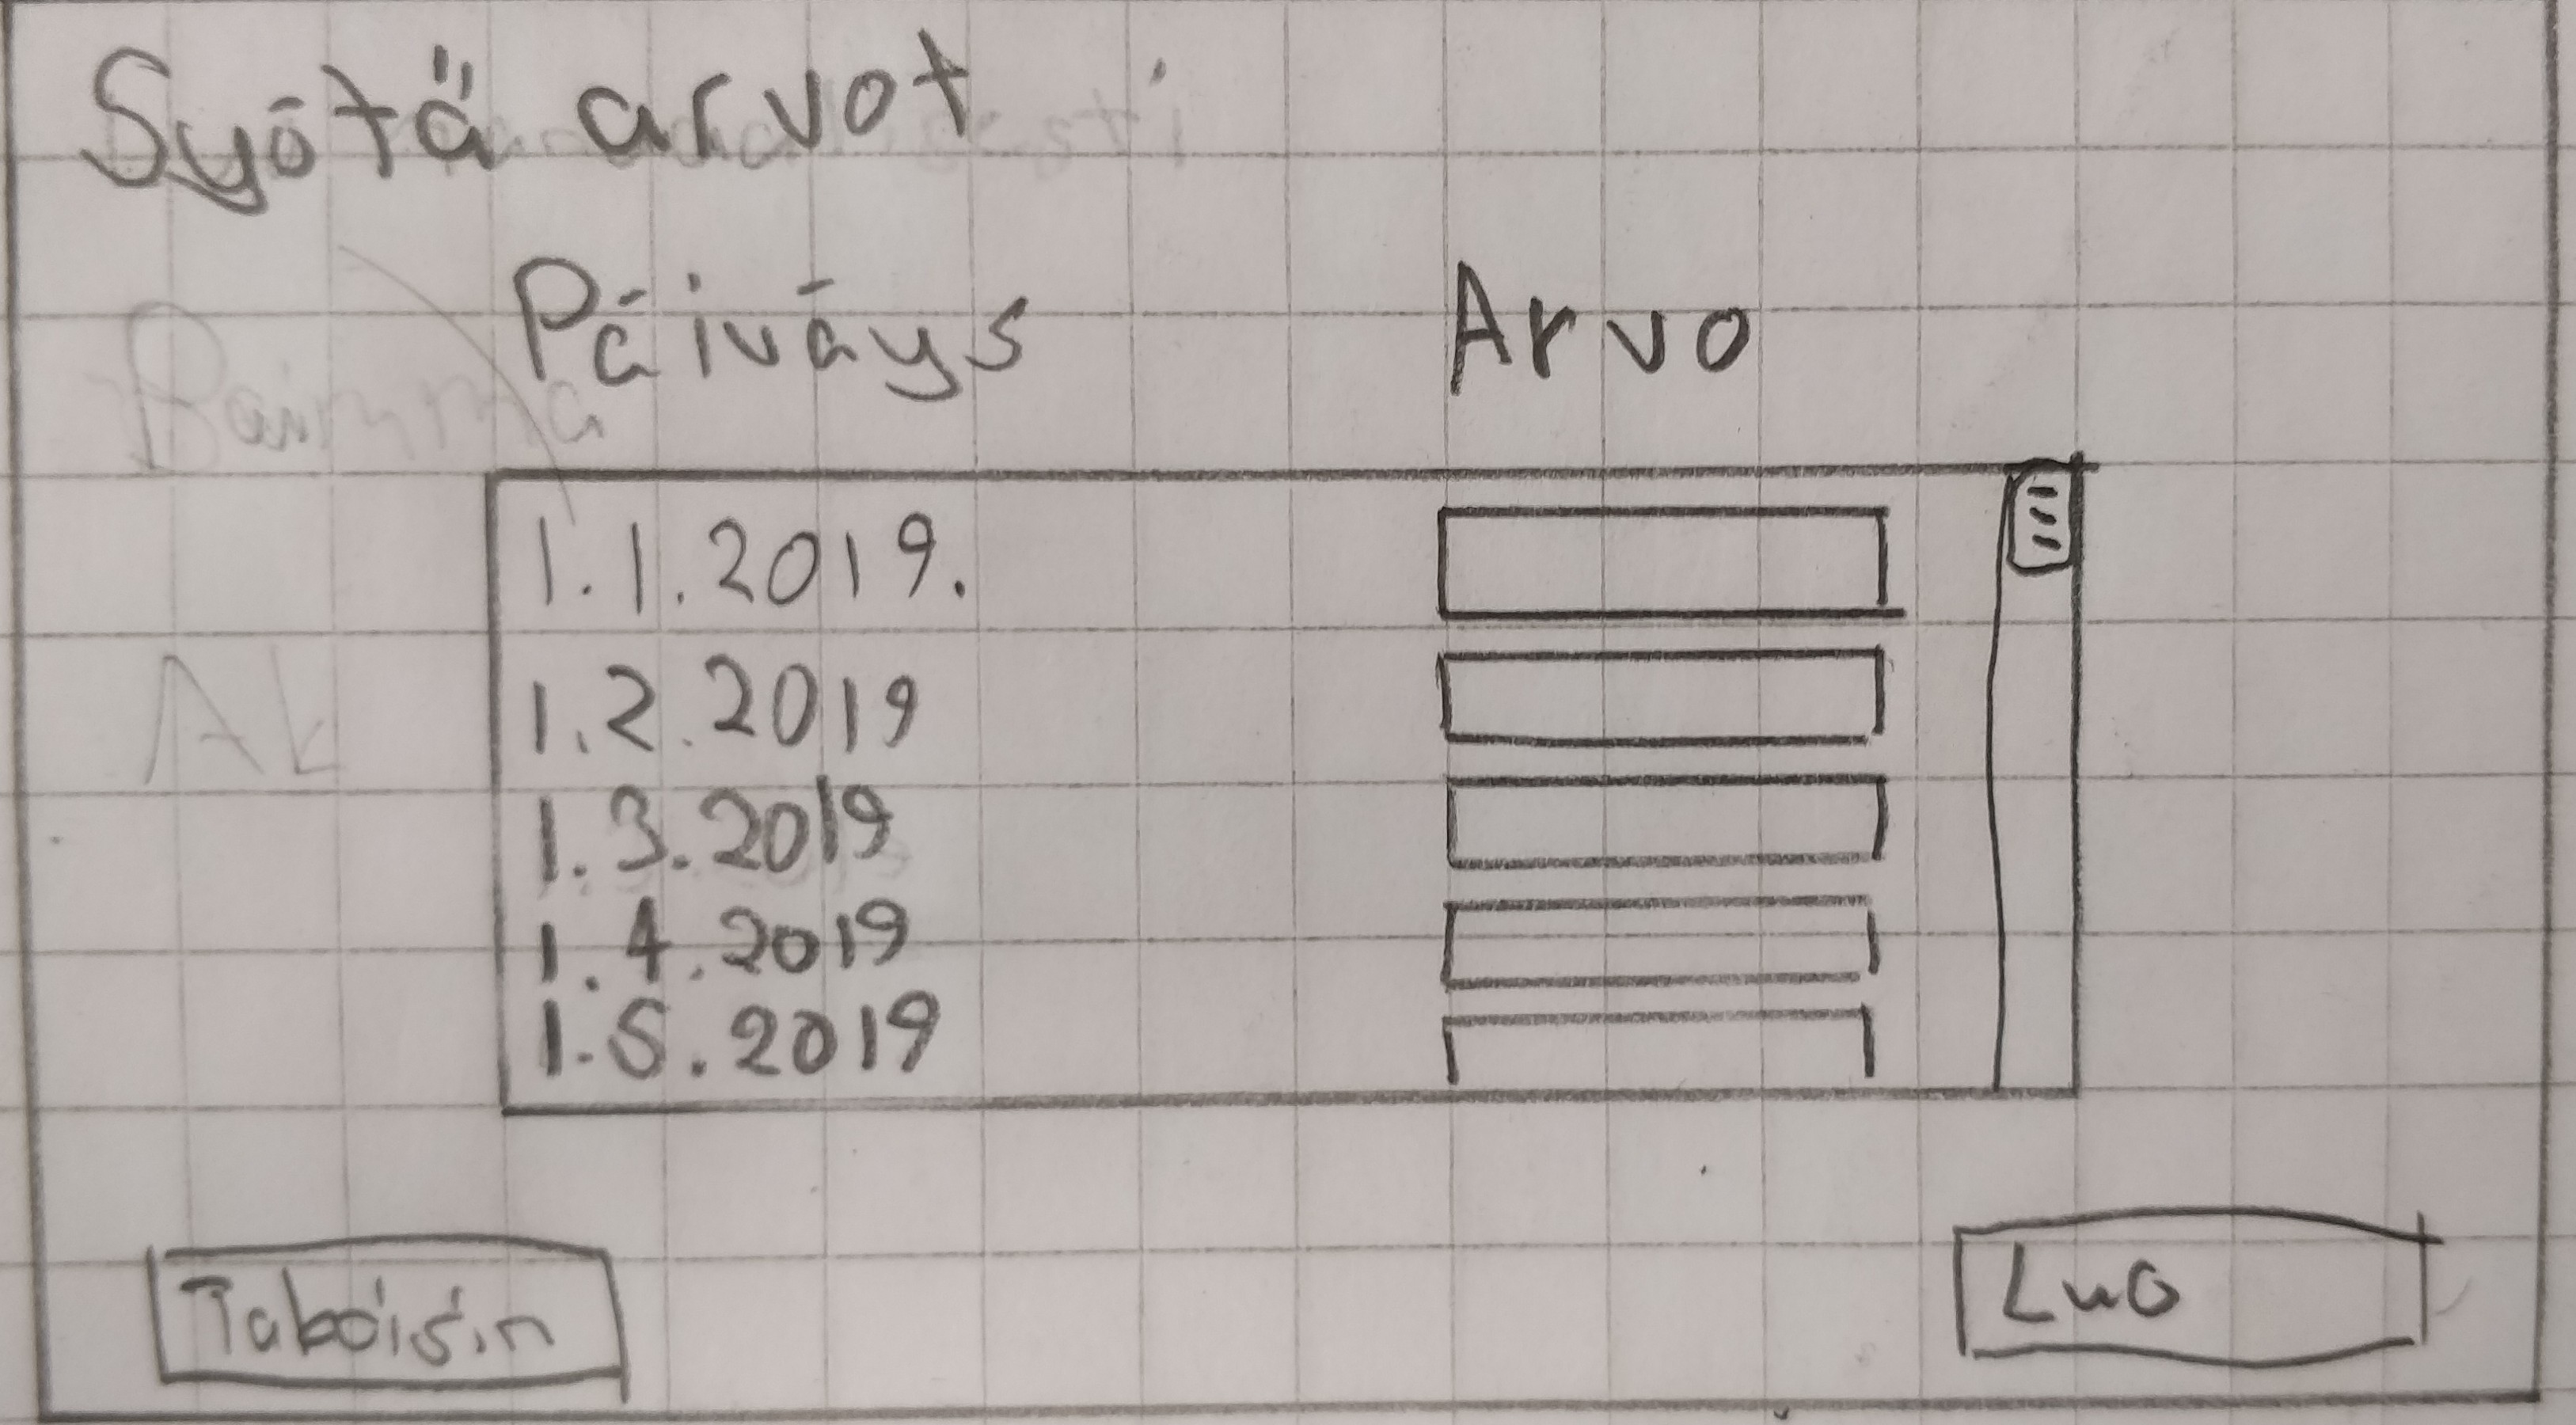 Syötä arvot
Päiväys Arvo
1.1.2019.
1.2.2019
1.3.2019
1.4.2019
1.5.2019
Luo